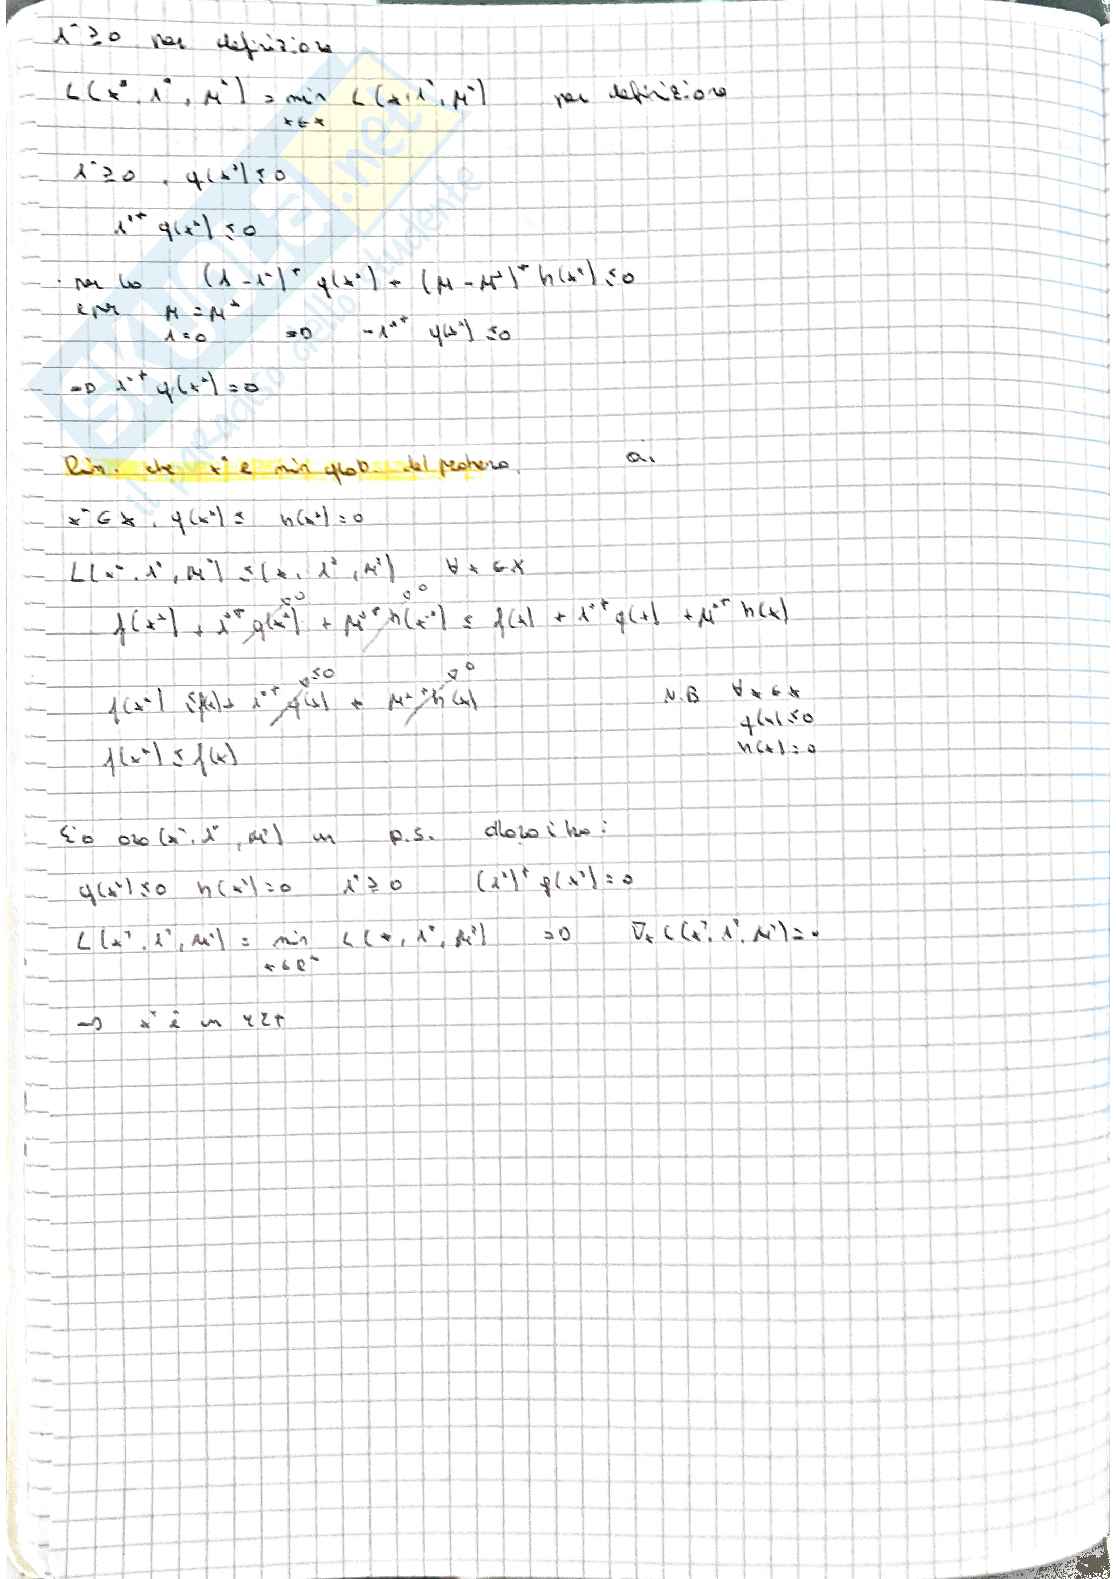 λ* ≥ 0 per definizione
L(x*, λ*, μ*) = min L(x, λ*, μ*) per definizione
x ∈ X
λ* ≥ 0, g(x*) ≤ 0
λ*ᵀ g(x*) ≤ 0
per (λ - λ*)ᵀ g(x*) + (μ - μ*)ᵀ h(x*) ≤ 0
e per μ = μ*
λ = 0 => -λ*ᵀ g(x*) ≤ 0
=> λ*ᵀ g(x*) = 0
Dim. che x* è min glob. del problema.
x* ∈ X, g(x*) ≤ h(x*) = 0
L(x*, λ*, μ*) ≤ (x, λ*, μ*) ∀ x ∈ X
f(x*) + λ*ᵀ g(x*) + μ*ᵀ h(x*) ≤ f(x) + λ*ᵀ g(x) + μ*ᵀ h(x)
f(x*) ≤ f(x) + λ*ᵀ g(x) + μ*ᵀ h(x) N.B ∀ x ∈ X
g(x) ≤ 0
f(x*) ≤ f(x) h(x) = 0
(x*, λ*, μ*) un p.s.
g(x*) ≤ 0 h(x*) = 0 λ* ≥ 0 (λ*)ᵀ g(x*) = 0
L(x*, λ*, μ*) = min L(x, λ*, μ*) => ∇x L(x*, λ*, μ*) = 0
x ∈ Rⁿ
=> x* è un KKT
SKUOLA.net